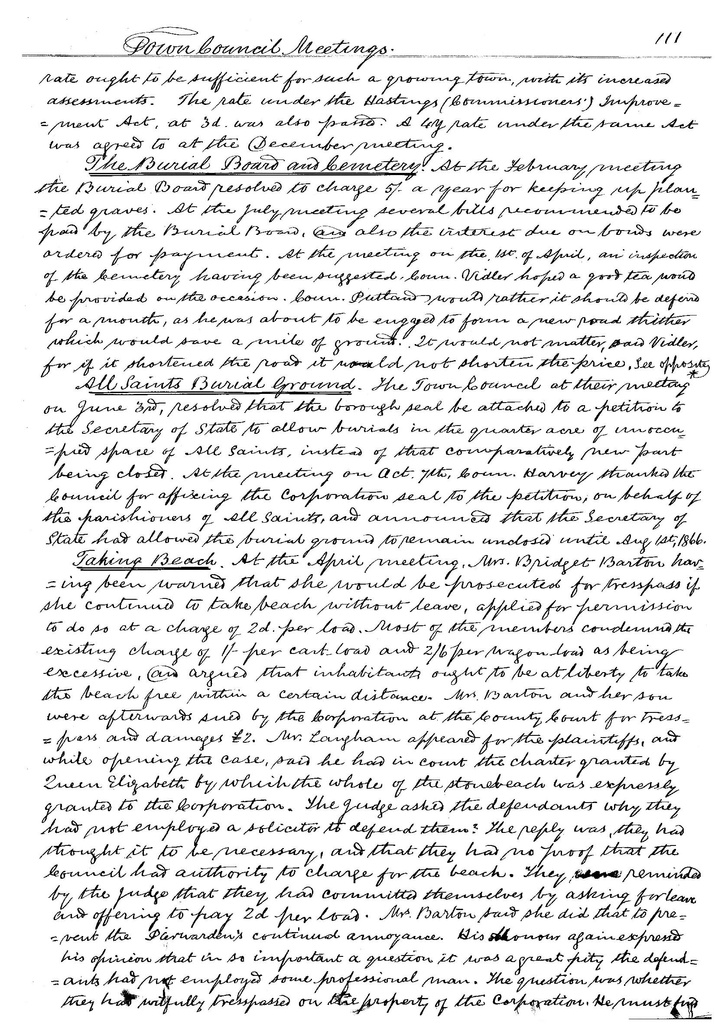 Town Council Meetings. 111
rate ought to be sufficient for such a growing town, with its increased
assessments. The rate under the Hastings (Commissioners') Improve=
=ment Act, at 3d. was also passed. A 4d rate under the same Act
was agreed to at the December meeting.
The Burial Board and Cemetery. At the February meeting
the Burial Board resolved to charge 5/- a year for keeping up plan=
=ted graves. At the July meeting several bills recommended to be
paid by the Burial Board, and also the interest due on bonds were
ordered for payment. At the meeting on the 1st of April, an inspection
of the Cemetery having been suggested, Coun. Vidler hoped a good tea woud
be provided on the occasion. Coun. Putland would rather it should be deferred
for a month, as he was about to be engaged to form a new road thither
which would save a mile of ground. It would not matter, said Vidler,
for if it shortened the road it would not shorten the price. See opposite *
All Saints Burial Ground. The Town Council at their meeting
on June 3rd, resolved that the borough seal be attached to a petition to
the Secretary of State to allow burials in the quarter acre of unoccu=
=pied space of All Saints, instead of that comparatively new part
being closed. At the meeting on Oct. 7th, Coun. Harvey thanked the
Council for affixing the Corporation seal to the petition, on behalf of
the parishioners of All Saints, and announced that the Secretary of
State had allowed the burial ground to remain unclosed until Aug 1st, 1866.
Taking Beach. At the April meeting, Mrs. Bridget Barton hav=
=ing been warned that she would be prosecuted for tresspass if
she continued to take beach without leave, applied for permission
to do so at a charge of 2d. per load. Most of the members condemned the
existing charge of 1/- per cart-load and 2/6 per wagon-load as being
excessive, and argued that inhabitants ought to be at liberty to take
the beach free within a certain distance. Mrs. Barton and her son
were afterwards sued by the Corporation at the County Court for tress=
=pass and damages £2. Mr. Langham appeared for the plaintiffs, and
while opening the case, said he had in court the charter granted by
Queen Elizabeth by which the whole of the stonebeach was expressly
granted to the Corporation. The Judge asked the defendants why they
had not employed a solicitor to defend them? The reply was, they had
thought it to be necessary, and that they had no proof that the
Council had authority to charge for the beach. They were reminded
by the Judge that they had committed themselves by asking for leave
and offering to pay 2d per load. Mrs. Barton said she did that to pre=
=vent the Pierwarden's continual annoyance. His Honour again expressed
his opinion that in so important a question it was a great pity the defend=
=ants had not employed some professional man. The question was whether
they had wilfully tresspassed on the property of the Corporation. He must find